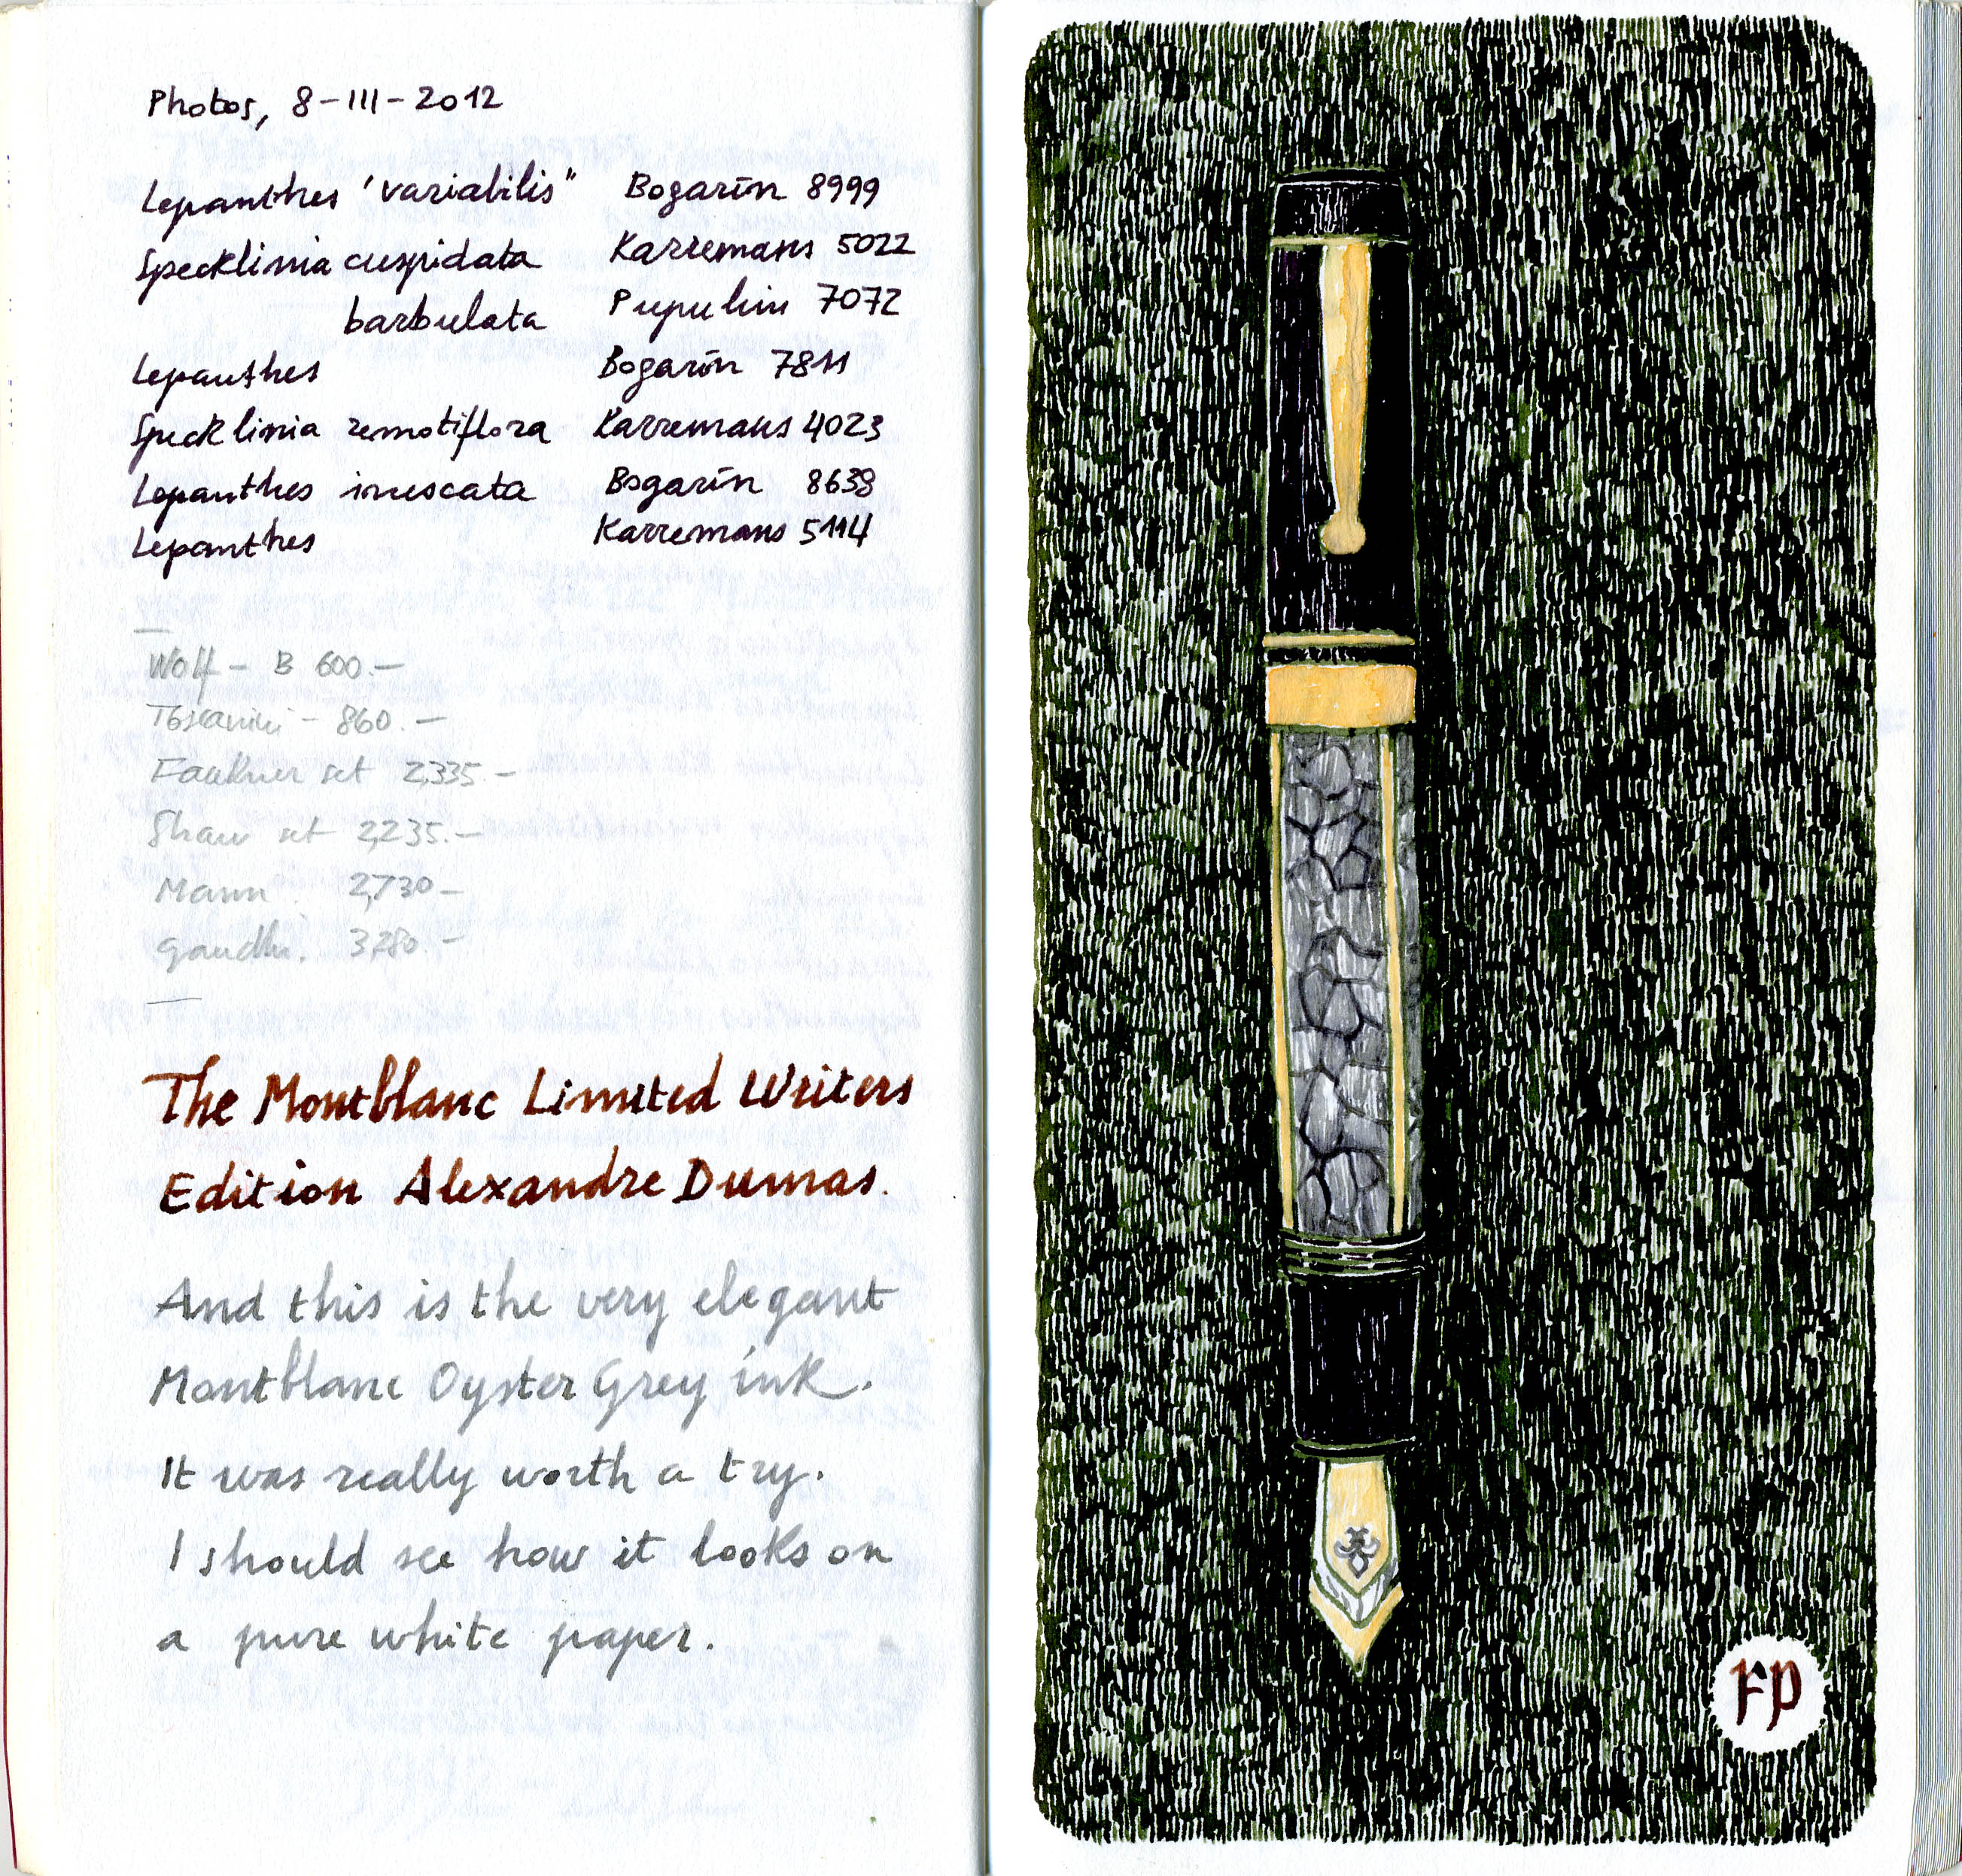 Photos, 8-III-2012
Lepanthes 'variabilis" Bogarín 8999
Specklinia cuspidata Karremans 5022
barbulata Pupulin 7072
Lepanthes Bogarín 7811
Specklinia remotiflora Karremans 4023
Lepanthes inescata Bogarín 8638
Lepanthes Karremans 5114
Wolf - B 600.-
Toscanini - 860.-
Faulkner set 2,335.-
Shaw set 2,235.-
Mann. 2,730-
Gandhi. 3,280-
The Montblanc Limited Writers
Edition Alexandre Dumas.
And this is the very elegant
Montblanc Oyster Grey ink.
It was really worth a try.
I should see how it looks on
a pure white paper.
FP